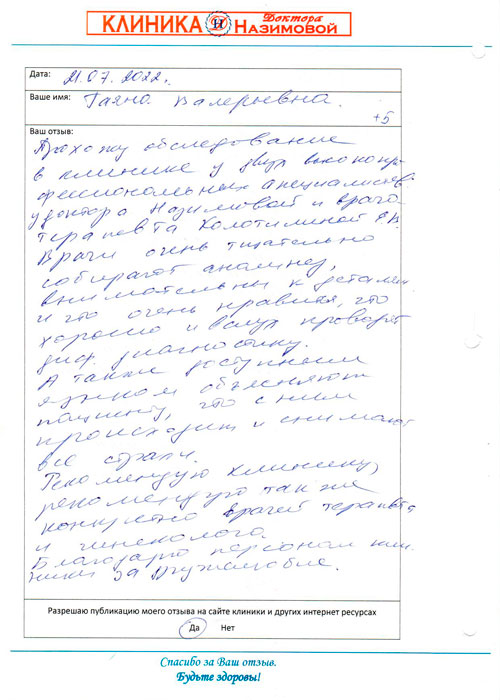 КЛИНИКА Доктора НАЗИМОВОЙ
Дата: 21.07.2022г.
Ваше имя: Валерьевна.
+5
Ваш отзыв:
Прохожу обследование
в клинике у двух высокопро
фессиональных специалистов
у доктора Назимовой и врача
терапевта Колотилиной
Врачи очень тщательно
собирают анамнез,
внимательны к деталям
и что очень нравится, что
хорошо и вслух проводят
диф. диагностику.
А также доступным
языком объясняют
пациенту, что с ним
происходит и снимают
все страхи.
Рекомендую клинику,
рекомендую также
конкретно врачей терапевта
и гинеколога.
Благодарю персонал кли
ники за дружелюбие.
Разрешаю публикацию моего отзыва на сайте клиники и других интернет ресурсах
Да Нет
Спасибо за Ваш отзыв.
Будьте здоровы!